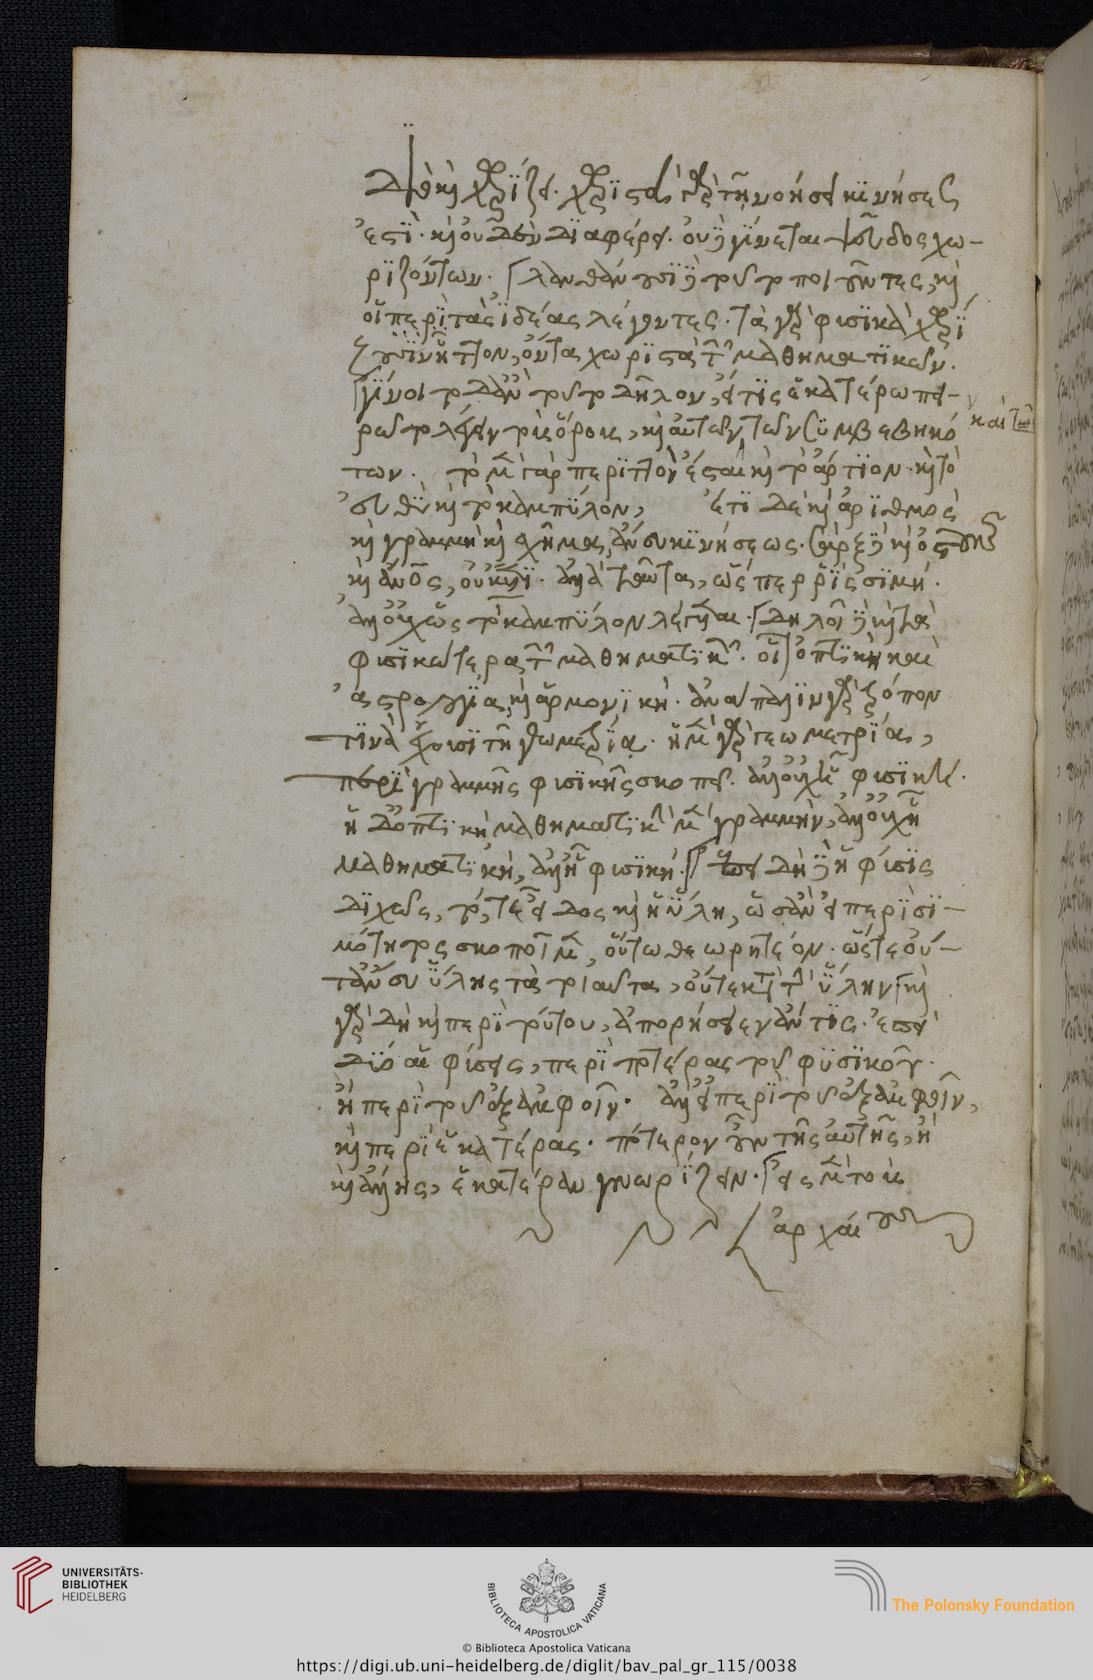 Διὸ καὶ χωρίζει. χωριστὰ γὰρ τῇ νοήσει κινήσεώς
ἐστι. καὶ οὐδὲν διαφέρει. οὐδὲ γίνεται ψεῦδος χω-
ριζόντων. λανθάνουσι δὲ τοῦτο ποιοῦντες, καὶ
οἱ περὶ τὰς ἰδέας λέγοντες. τὰ γὰρ φυσικὰ χωρί
ζουσιν ἧττον ὄντα χωριστὰ τῶν μαθηματικῶν.
γίνοιτο δ' ἂν τοῦτο δῆλον, εἴ τις ἑκατέρων πει-
ρῷτο λέγειν τοὺς ὅρους, καὶ αὐτῶν καὶ τῶν συμβεβηκό
των. τὸ μὲν γὰρ περιττὸν ἔσται καὶ τὸ ἄρτιον. καὶ τὸ
εὐθὺ καὶ τὸ καμπύλον, ἔτι δὲ καὶ ἀριθμὸς
καὶ γραμμὴ καὶ σχῆμα, ἄνευ κινήσεως. σὰρξ δὲ καὶ ὀστοῦν
καὶ ἄνθρωπος, οὐκέτι. ἀλλὰ ταῦτα, ὥσπερ ῥὶς σιμή.
ἀλλ' οὐχ ὡς τὸ καμπύλον λέγεται. δηλοῖ δὲ καὶ τὰ
φυσικώτερα τῶν μαθημάτων. οἷον ὀπτικὴ καὶ
ἀστρολογία, καὶ ἁρμονική. ἀνάπαλιν γὰρ τρόπον
τινὰ ἔχουσι τῇ γεωμετρίᾳ. ἡ μὲν γὰρ γεωμετρία,
περὶ γραμμῆς φυσικῆς σκοπεῖ. ἀλλ' οὐχ ᾗ φυσική.
ἡ δ' ὀπτικὴ μαθηματικὴν μὲν γραμμήν, ἀλλ' οὐχ ᾗ
μαθηματική, ἀλλ' ᾗ φυσική. ἐπεὶ δὲ ἡ φύσις
διχῶς, τό, τε εἶδος καὶ ἡ ὕλη, ὡς ἂν εἰ περὶ σι-
μότητος σκοποῖμεν, οὕτω θεωρητέον. ὥστε οὔ-
τ' ἄνευ ὕλης τὰ τοιαῦτα, οὔτε κατὰ τὴν ὕλην. καὶ
γὰρ δὴ καὶ περὶ τούτου, ἀπορήσειεν ἄν τις. ἐπεὶ
δύο αἱ φύσεις, περὶ ποτέρας τοῦ φυσικοῦ.
ἢ περὶ τοῦ ἐξ ἀμφοῖν. ἀλλ' εἰ περὶ τοῦ ἐξ ἀμφοῖν,
καὶ περὶ ἑκατέρας. πότερον οὖν τῆς αὐτῆς, ἢ
καὶ ἄλλης, ἑκατέραν γνωρίζειν. εἰς μὲν τοὺς
ἀρχαίους
UNIVERSITÄTS-
BIBLIOTHEK
HEIDELBERG
BIBLIOTECA APOSTOLICA VATICANA
The Polonsky Foundation
© Biblioteca Apostolica Vaticana
https://digi.ub.uni-heidelberg.de/diglit/bav_pal_gr_115/0038